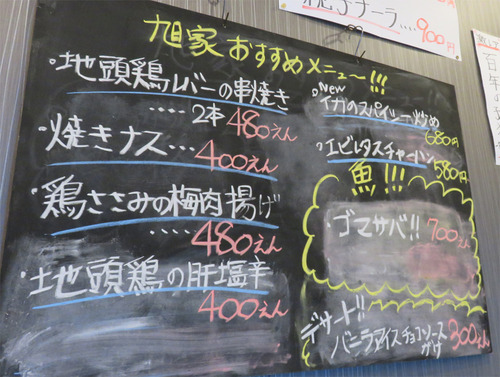 旭家おすすめメニュー!!!
・地頭鶏レバーの串焼き
‥‥2本480えん
・焼きナス…
400えん
・鶏ささみの梅肉揚げ
‥‥480えん
・地頭鶏の肝塩辛
400えん
New
・イカのスパイシー炒め
680円
・エビレタスチャーハン
580円
魚!!!
・ゴマサバ!!700えん
デザート!!
バニラアイスチョコソース
がけ
300えん
900円